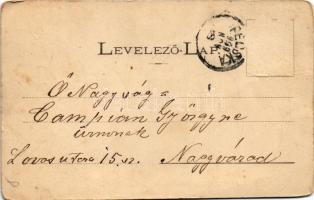 LEVELEZŐ-LAP
Ő Nagysága
Campián Györgyné
úrnőnek
Lovas utca 15. sz. Nagyvárad